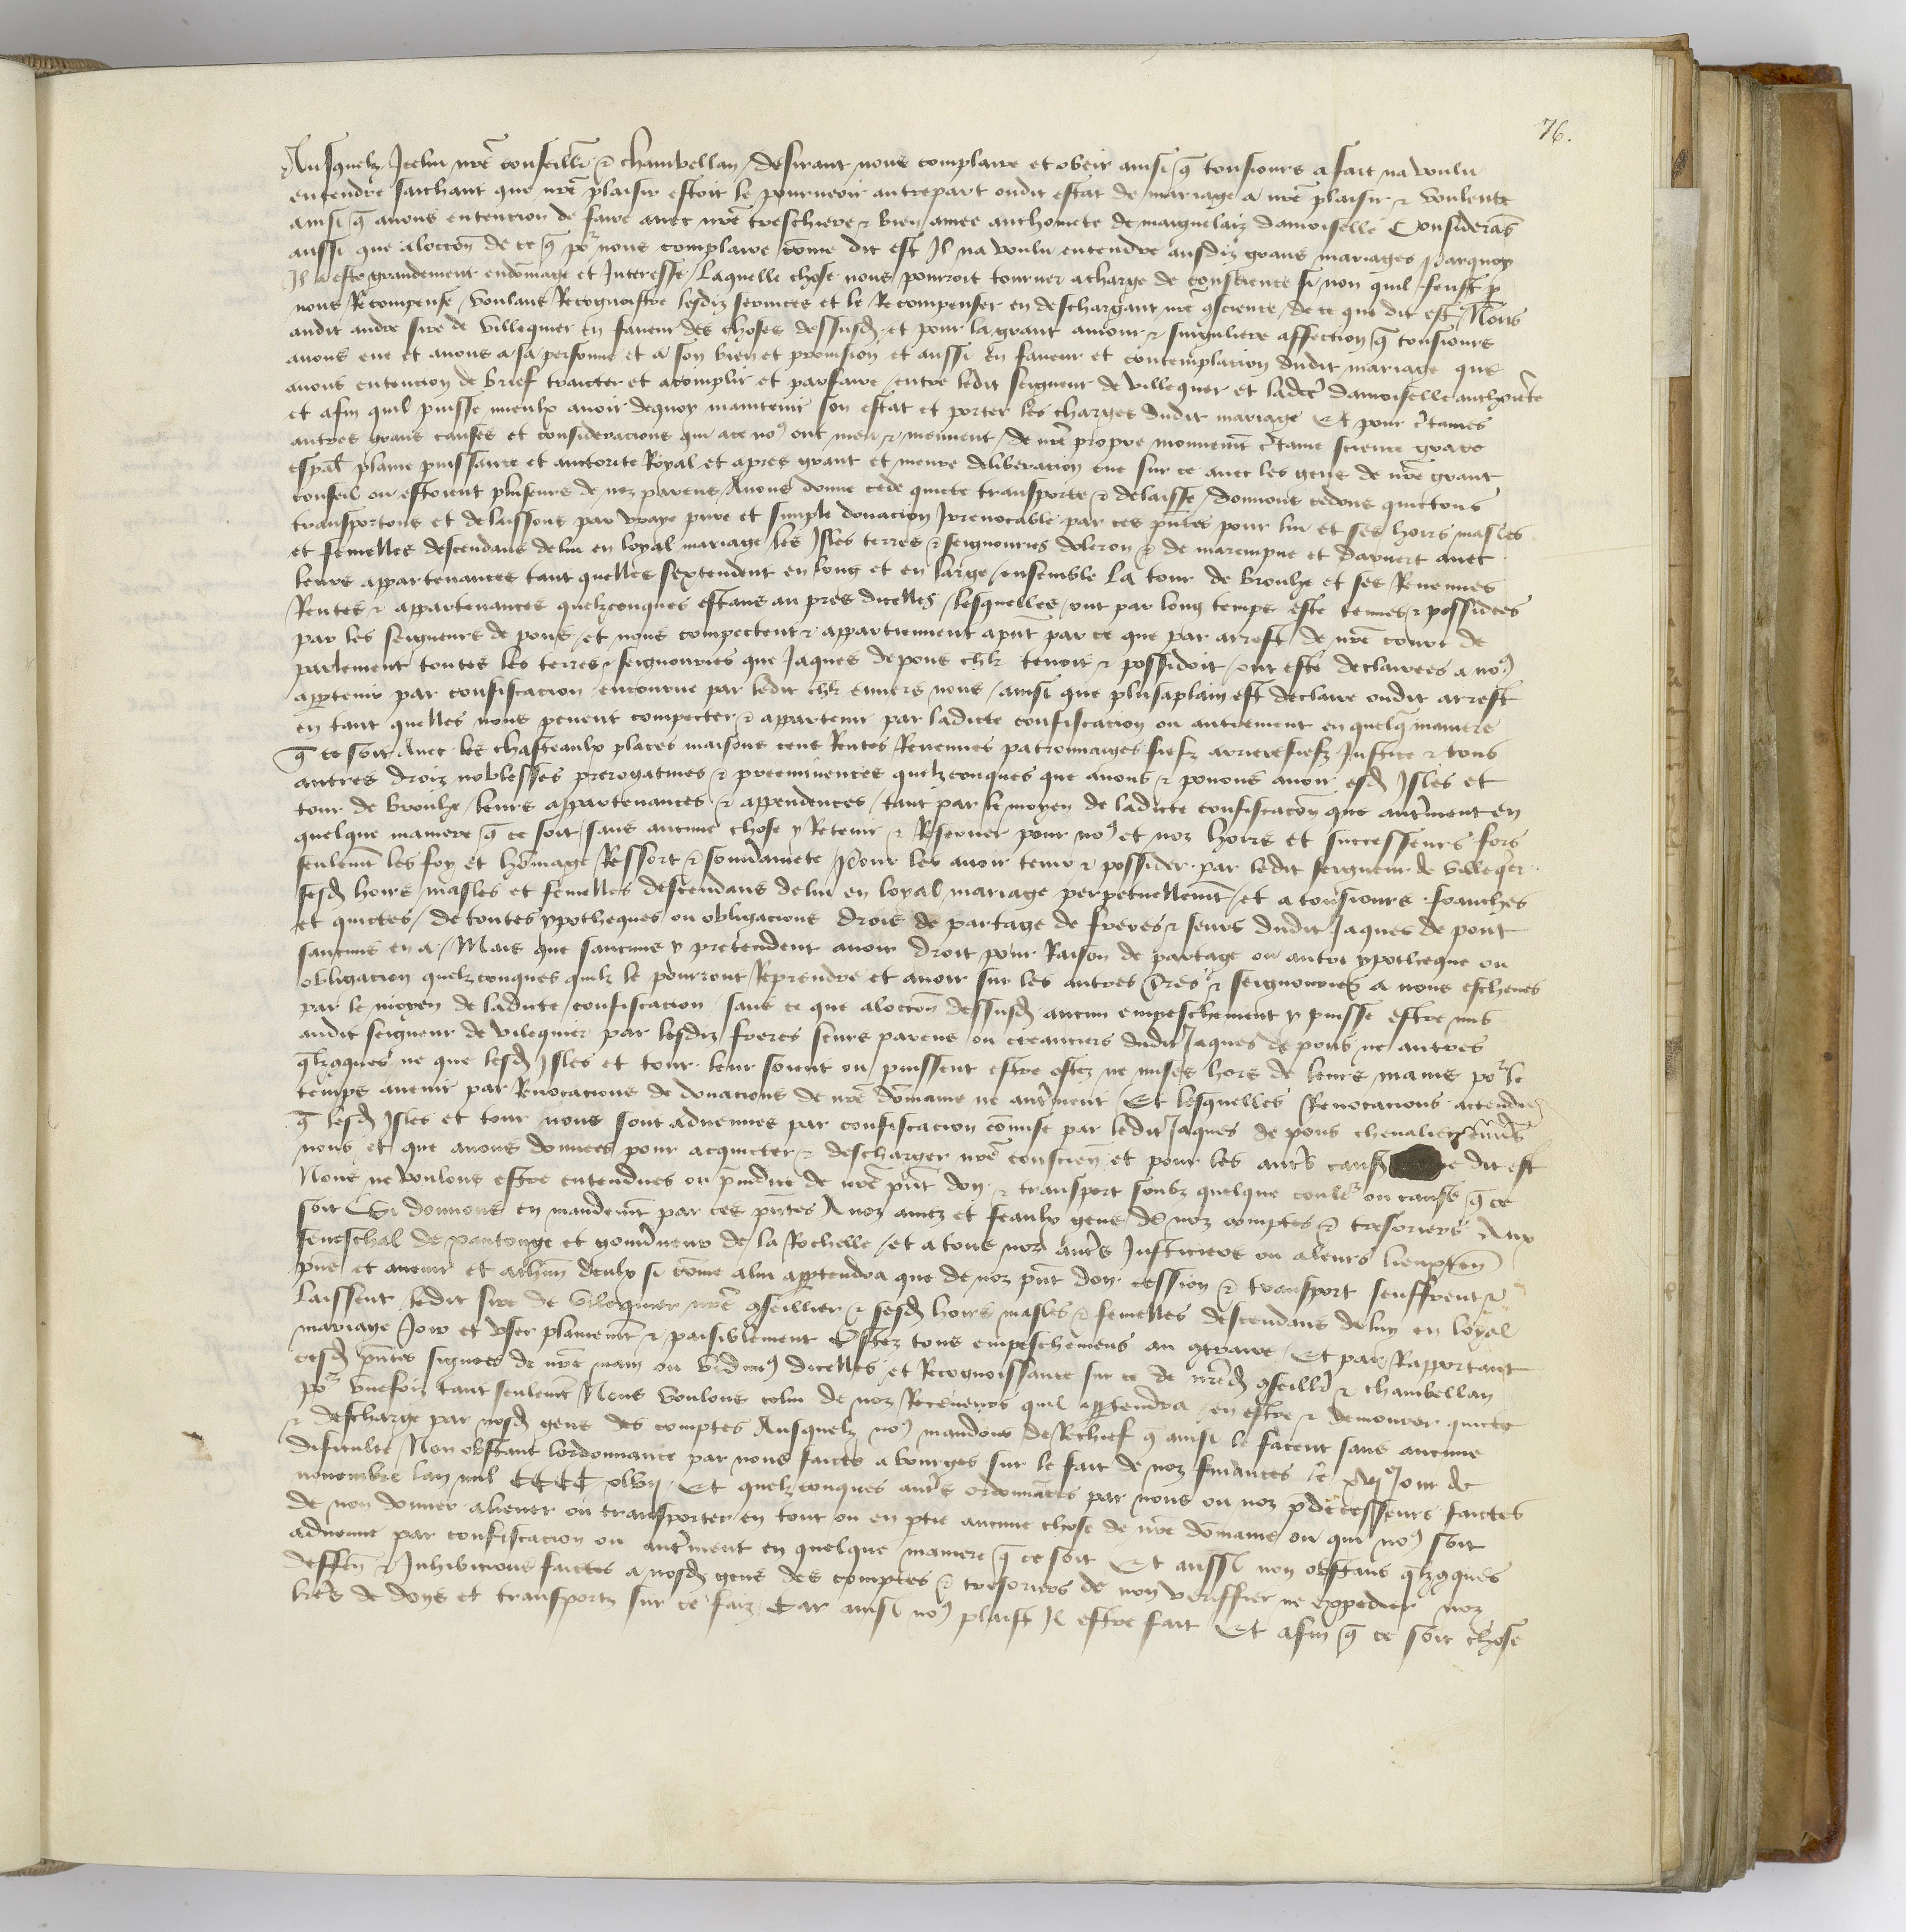 76.
Ausquelz Icelui nrē conseillr̄ & chambellan desirant nous complaire et obeir ainsi q̄ tousiours a fait na voulu
entendre saichant que nrē plaisir estoit le pourueoir autrepart oudit estat de mariage a nrē plaisir & voulente
ainsi q̄ auons entencion de faire auec nrē treschiere & bien amee anthoinete de maignelaiz damoiselle Considerās
aussi que aloccoīn de ce q̄ por nous complaire cōme dit est Il na voulu entendre ausdiz grans mariages parquoy
Il a este grandement endōmage et Interesse laquelle chose nous pourroit tourner acharge de conscience si non quil feust p̄
nous Recompense voulans Recognoistre lesdiz seruices et le Recompenser en deschargant nrē 9science de ce que dit est Nous
audit andre sire de villequier en faueur des choses dessusd et pour la grant amour & singuliere affection q̄ tousiours
auons eue et auons a sa personne et a son bien et prouision et aussi en faueur et contemplacion dudit mariage que
auons entencion de brief traicter et acomplir et parfaire entre ledit seigneur de villequier et ladcē damoiselle anthoinete
et afin quil puisse mieulx auoir dequoy maintenir son estat et porter les charges dudit mariage Et pour c̄taines
autres grans causes et consideracions qui ace no9 ont meu & meuuent de nrē propre mouuemt̄ c̄taine science grace
espāl plaine puissance et auctorite Royal et apres grant et meure deliberacion eue sur ce auec les gens de nrē grant
conseil ou estoient pluseurs de noz parens Auons donne cede quicte transporte & delaisse donnons cedons quictons
transportons et delaissons par vraye pure et simple donacion Irreuocable par ces pn̄tes pour lui et ses hoirs masles
et femelles descendans delui en loyal mariage les Isles terres & seigneuries doleron & de marempne et daruert auec
leurs appartenances tant quelles sextendent en long et en large ensemble la tour de brouhe et ses Reuenues
Rentes & appartenances quelzconques estans au pres dicelles lesquelles ont par long temps este tenues & possidees
par les seigneurs de pons et nous compectent & appartiennent apn̄t par ce que par arrest de nrē court de
parlement toutes les terres & seigneuries que Jaques depons chlr tenoit & possidoit ont este declairees a no9
appartenir par confiscacion encourue par ledit chlr enuers nous ainsi que plusaplain est declaire oudit arrest
en tant quelles nous peuent compecter & appartenir par ladicte confiscacion ou autrement en quelq̄ maniere
q̄ ce soit Auec les chasteaulx places maisons cens Rentes Reuenues patronnaiges fiefz arrierefiefz Justice & tous
autres droiz noblesses prerogatiues & preeminences quelzconques que auons & pouons auoir esd Isles et
tour de brouhe leurs appartenances & appendences tant par le moyen de ladicte confiscacōn que autr̄ment en
quelque maniere q̄ ce soit sans aucune chose y Retenir & Reseruer pour no9 et noz hoirs et successeurs fors
seulemt̄ les foy et hōmage Ressort & souuerainete Pour les auoir tenir & possider par ledit seigneur de villeqer
sesd hoirs masles et femelles descendans delui en loyal mariage perpetuellemt̄ et a tousiours franches
et quictes de toutes ypotheques ou obligacions drois de partage de freres & seurs dudit Jaques de pons
saucuns en a Mais que saucuns y pretendent auoir droit pour Raison de partage ou autre ypotheque ou
obligacion quelzconques quilz le pourront Reprendre et auoir sur les autres tr̄es & seigneuries a nous escheues
par le moyen de ladicte confiscacion sans ce que aloccōn dessusd aucun empeschement y puisse estre mis
audit seigneur de vilequier par lesdiz freres seurs parens ou creanciers dudit Jaques de pons ne autres
q̄lz9ques ne que lesd Isles et tour leur soient ou puissent estre ostez ne mises hors de leurs mains por le
temps auenir par Reuocacions de donacions de nrē dōmaine ne autr̄ment Et lesquelles Reuocacions actendu
q̄ lesd Isles et tour nous sont aduenues par confiscacion cōmise par ledit Jaques de pons cheualier enu͂s
nous et que auons donnees pour acquicter & descharger nrē conscien et pour les autr̄s caus dit est
Nous ne voulons estre entendues ou p̄iudice de nrē pn̄t don & transport soubz quelque coulr ou cause q̄ ce
soit Si donnons en mandemt̄ par ces pn̄tes A noz amez et feaulx gens de noz comptes & tresoriers Aux
seneschal de xantonge et gouu͂neur de la Rochelle et a tous noz autr̄s Justiciers ou aleurs lieuxten
pn̄s et auenir et achūn deulx si cōme alui appartendra que de noz pn̄t don cession & transport seuffrent &
laissent ledit sire de vilequier nrē 9seillier & sesd hoirs masles & femelles descendans deluy en loyal
mariage Joir et vser plainemt̄ & paisiblement Ostez tous empeschemens au 9traire Et par Rapportant
cesd pn̄tes signees de nrē main ou vidim9 dicelles et Recognoissance sur ce de nrēd 9seillr̄ & chambellan
por vnefoiz tant seulemt̄ Nous voulons celui de noz Receueurs quil appartendra en estre & demourer quicte
& descharge par nosd gens des comptes Ausquelz no9 mandons deRechief q̄ ainsi le facent sans aucune
dificulte Non obstant lordonnance par nous faicte a bourges sur le fait de noz finances le xvje Jour de
nouembre lan mil CCCC xlvij Et quelzconques autr̄s ordonnāces par nous ou noz p̄decesseurs faictes
de non donner aliener ou transporter en tout ou en ptie aucune chose de nrē dōmaine ou qui no9 soit
aduenue par confiscacion ou autr̄ment en quelque maniere q̄ ce soit Et aussi non obstans q̄lz9ques
deffen & Inhibicions faictes a nosd gens des comptes & tresoriers de non veriffier ne expedier noz
lrēs de dons et transportz sur ce faiz Car ainsi no9 plaist Il estre fait Et afin q̄ ce soit chose